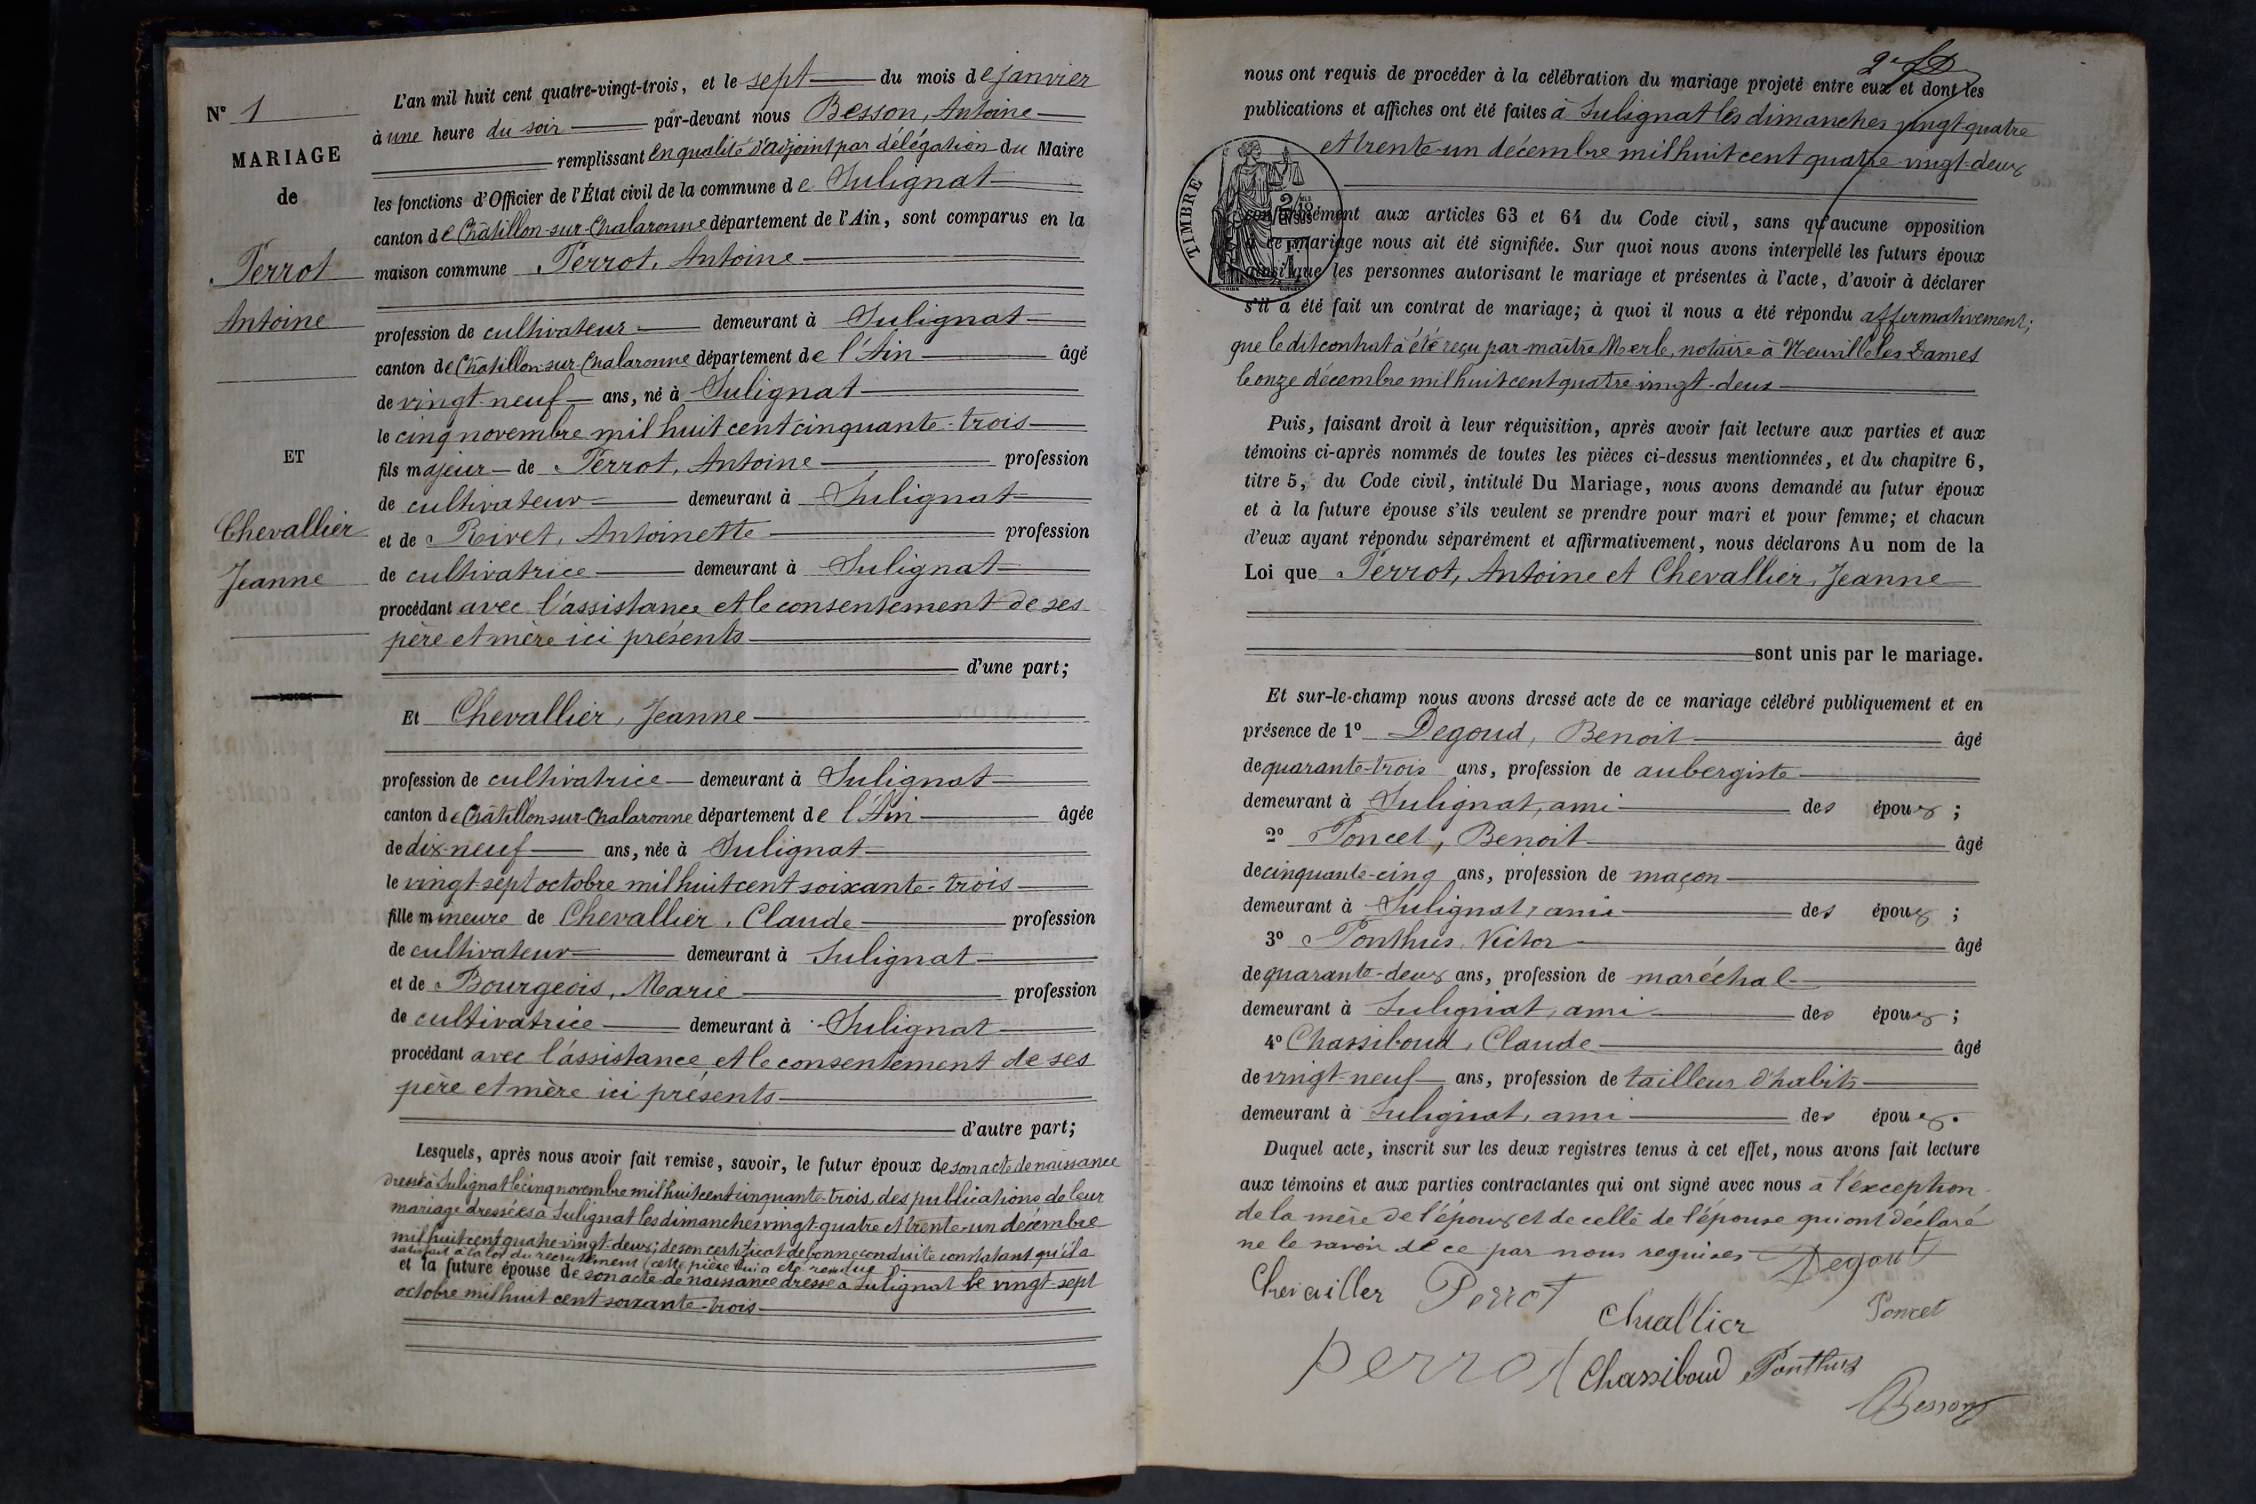 N° 1
MARIAGE
de
Perrot
Antoine
ET
Chevallier
Jeanne
L'an mil huit cent quatre-vingt-trois, et le sept du mois de janvier
à une heure du soir par-devant nous Besson, Antoine
remplissant en qualité d'adjoint par délégation du Maire
les fonctions d'Officier de l'État civil de la commune de Sulignat
canton de Châtillon-sur-Chalaronne département de l'Ain, sont comparus en la
maison commune Perrot, Antoine
profession de cultivateur demeurant à Sulignat
canton de Châtillon-sur-Chalaronne département de l'Ain âgé
de vingt-neuf ans, né à Sulignat
le cinq novembre mil huit cent cinquante-trois
fils majeur de Perrot, Antoine profession
de cultivateur demeurant à Sulignat
et de Rivet, Antoinette profession
de cultivatrice demeurant à Sulignat
procédant avec l'assistance et le consentement de ses
père et mère ici présents
d'une part;
Et Chevallier, Jeanne
profession de cultivatrice demeurant à Sulignat
canton de Châtillon-sur-Chalaronne département de l'Ain âgée
de dix-neuf ans, née à Sulignat
le vingt-sept octobre mil huit cent soixante-trois
fille mineure de Chevallier, Claude profession
de cultivateur demeurant à Sulignat
et de Bourgeois, Marie profession
de cultivatrice demeurant à Sulignat
procédant avec l'assistance et le consentement de ses
père et mère ici présents
d'autre part;
Lesquels, après nous avoir fait remise, savoir, le futur époux de son acte de naissance
dressé à Sulignat le cinq novembre mil huit cent cinquante-trois, des publications de leur
mariage dressées à Sulignat les dimanches vingt-quatre et trente-un décembre
mil huit cent quatre-vingt-deux; de son certificat de bonne conduite constatant qu'il a
satisfait à la loi du recrutement (cette pièce lui a été rendue
et la future épouse de son acte de naissance dressé à Sulignat le vingt-sept
octobre mil huit cent soixante-trois
nous ont requis de procéder à la célébration du mariage projeté entre eux et dont les
publications et affiches ont été faites à Sulignat les dimanches vingt-quatre
et trente-un décembre mil huit cent quatre-vingt-deux
TIMBRE
conformément aux articles 63 et 64 du Code civil, sans qu'aucune opposition
à ce mariage nous ait été signifiée. Sur quoi nous avons interpellé les futurs époux
ainsi que les personnes autorisant le mariage et présentes à l'acte, d'avoir à déclarer
s'il a été fait un contrat de mariage; à quoi il nous a été répondu affirmativement;
que le dit contrat a été reçu par maître Merle, notaire à Neuville les Dames
le onze décembre mil huit cent quatre vingt-deux
Puis, faisant droit à leur réquisition, après avoir fait lecture aux parties et aux
témoins ci-après nommés de toutes les pièces ci-dessus mentionnées, et du chapitre 6,
titre 5, du Code civil, intitulé Du Mariage, nous avons demandé au futur époux
et à la future épouse s'ils veulent se prendre pour mari et pour femme; et chacun
d'eux ayant répondu séparément et affirmativement, nous déclarons Au nom de la
Loi que Perrot, Antoine et Chevallier, Jeanne
sont unis par le mariage.
Et sur-le-champ nous avons dressé acte de ce mariage célébré publiquement et en
présence de 1° Degoud, Benoit âgé
de quarante-trois ans, profession de aubergiste
demeurant à Sulignat, ami des époux;
2° Poncet, Benoit âgé
de cinquante-cinq ans, profession de maçon
demeurant à Sulignat, ami des époux;
3° Ponthus, Victor âgé
de quarante-deux ans, profession de maréchal
demeurant à Sulignat, ami des époux;
4° Chassiboud, Claude âgé
de vingt-neuf ans, profession de tailleur d'habits
demeurant à Sulignat, ami des époux.
Duquel acte, inscrit sur les deux registres tenus à cet effet, nous avons fait lecture
aux témoins et aux parties contractantes qui ont signé avec nous à l'exception
de la mère de l'époux et de celle de l'épouse qui ont déclaré
ne le savoir de ce par nous requises Degout
Chevailler Perrot
Chvallier Poncet
perrot Chassiboud Ponthus
Besson